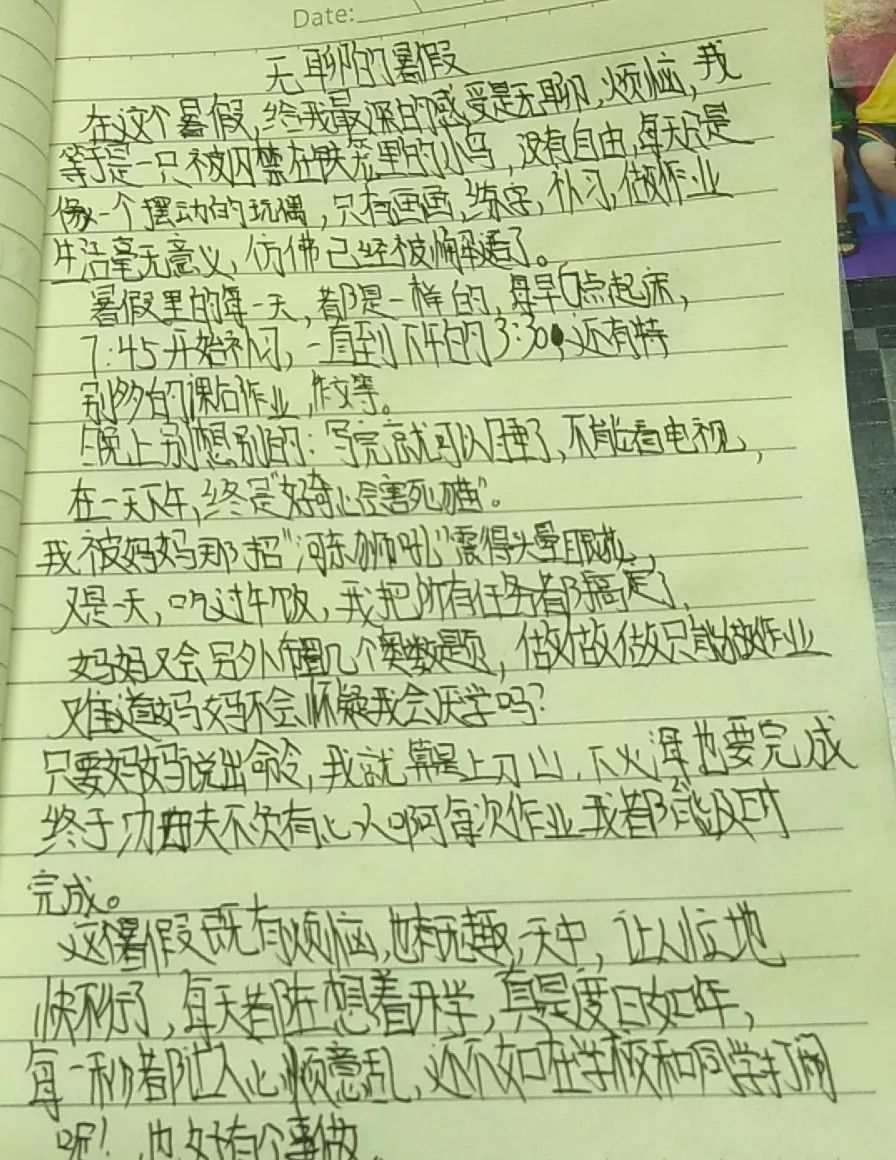 Date:
无聊的暑假
在这个暑假,给我最深的感受是无聊,烦恼,我
等于是一只被囚禁在铁笼里的小鸟,没有自由,每天只是
像一个摆动的玩偶,只有画画,练字,补习,做作业
生活毫无意义,仿佛已经被懈通了。
暑假里的每一天,都是一样的,每早6点起床,
7:45开始补习,一直到下午的3:30,还有特
别多的课后作业,作文等。
晚上别想别的:写完就可以睡了,不能看电视,
在一天下午,终是"好奇心会害死猫"。
我被妈妈那招"河东狮吼"震得头晕眼花,
又是一天,吃过午饭,我把所有任务都搞定了,
妈妈又会另外布置几个奥数题,做做做只能做作业
难道妈妈不会怀疑我会厌学吗?
只要妈妈说出命令,我就算是上刀山,下火海也要完成
终于功夫不负有心人啊每次作业我都能及时
完成。
这暑假既有烦恼,也有无趣,天中,让人忙地
快不行了,每天都在想着开学,真是度日如年,
每一秒都让人心烦意乱,还不如在学校和同学打闹
呢!也好有个事做